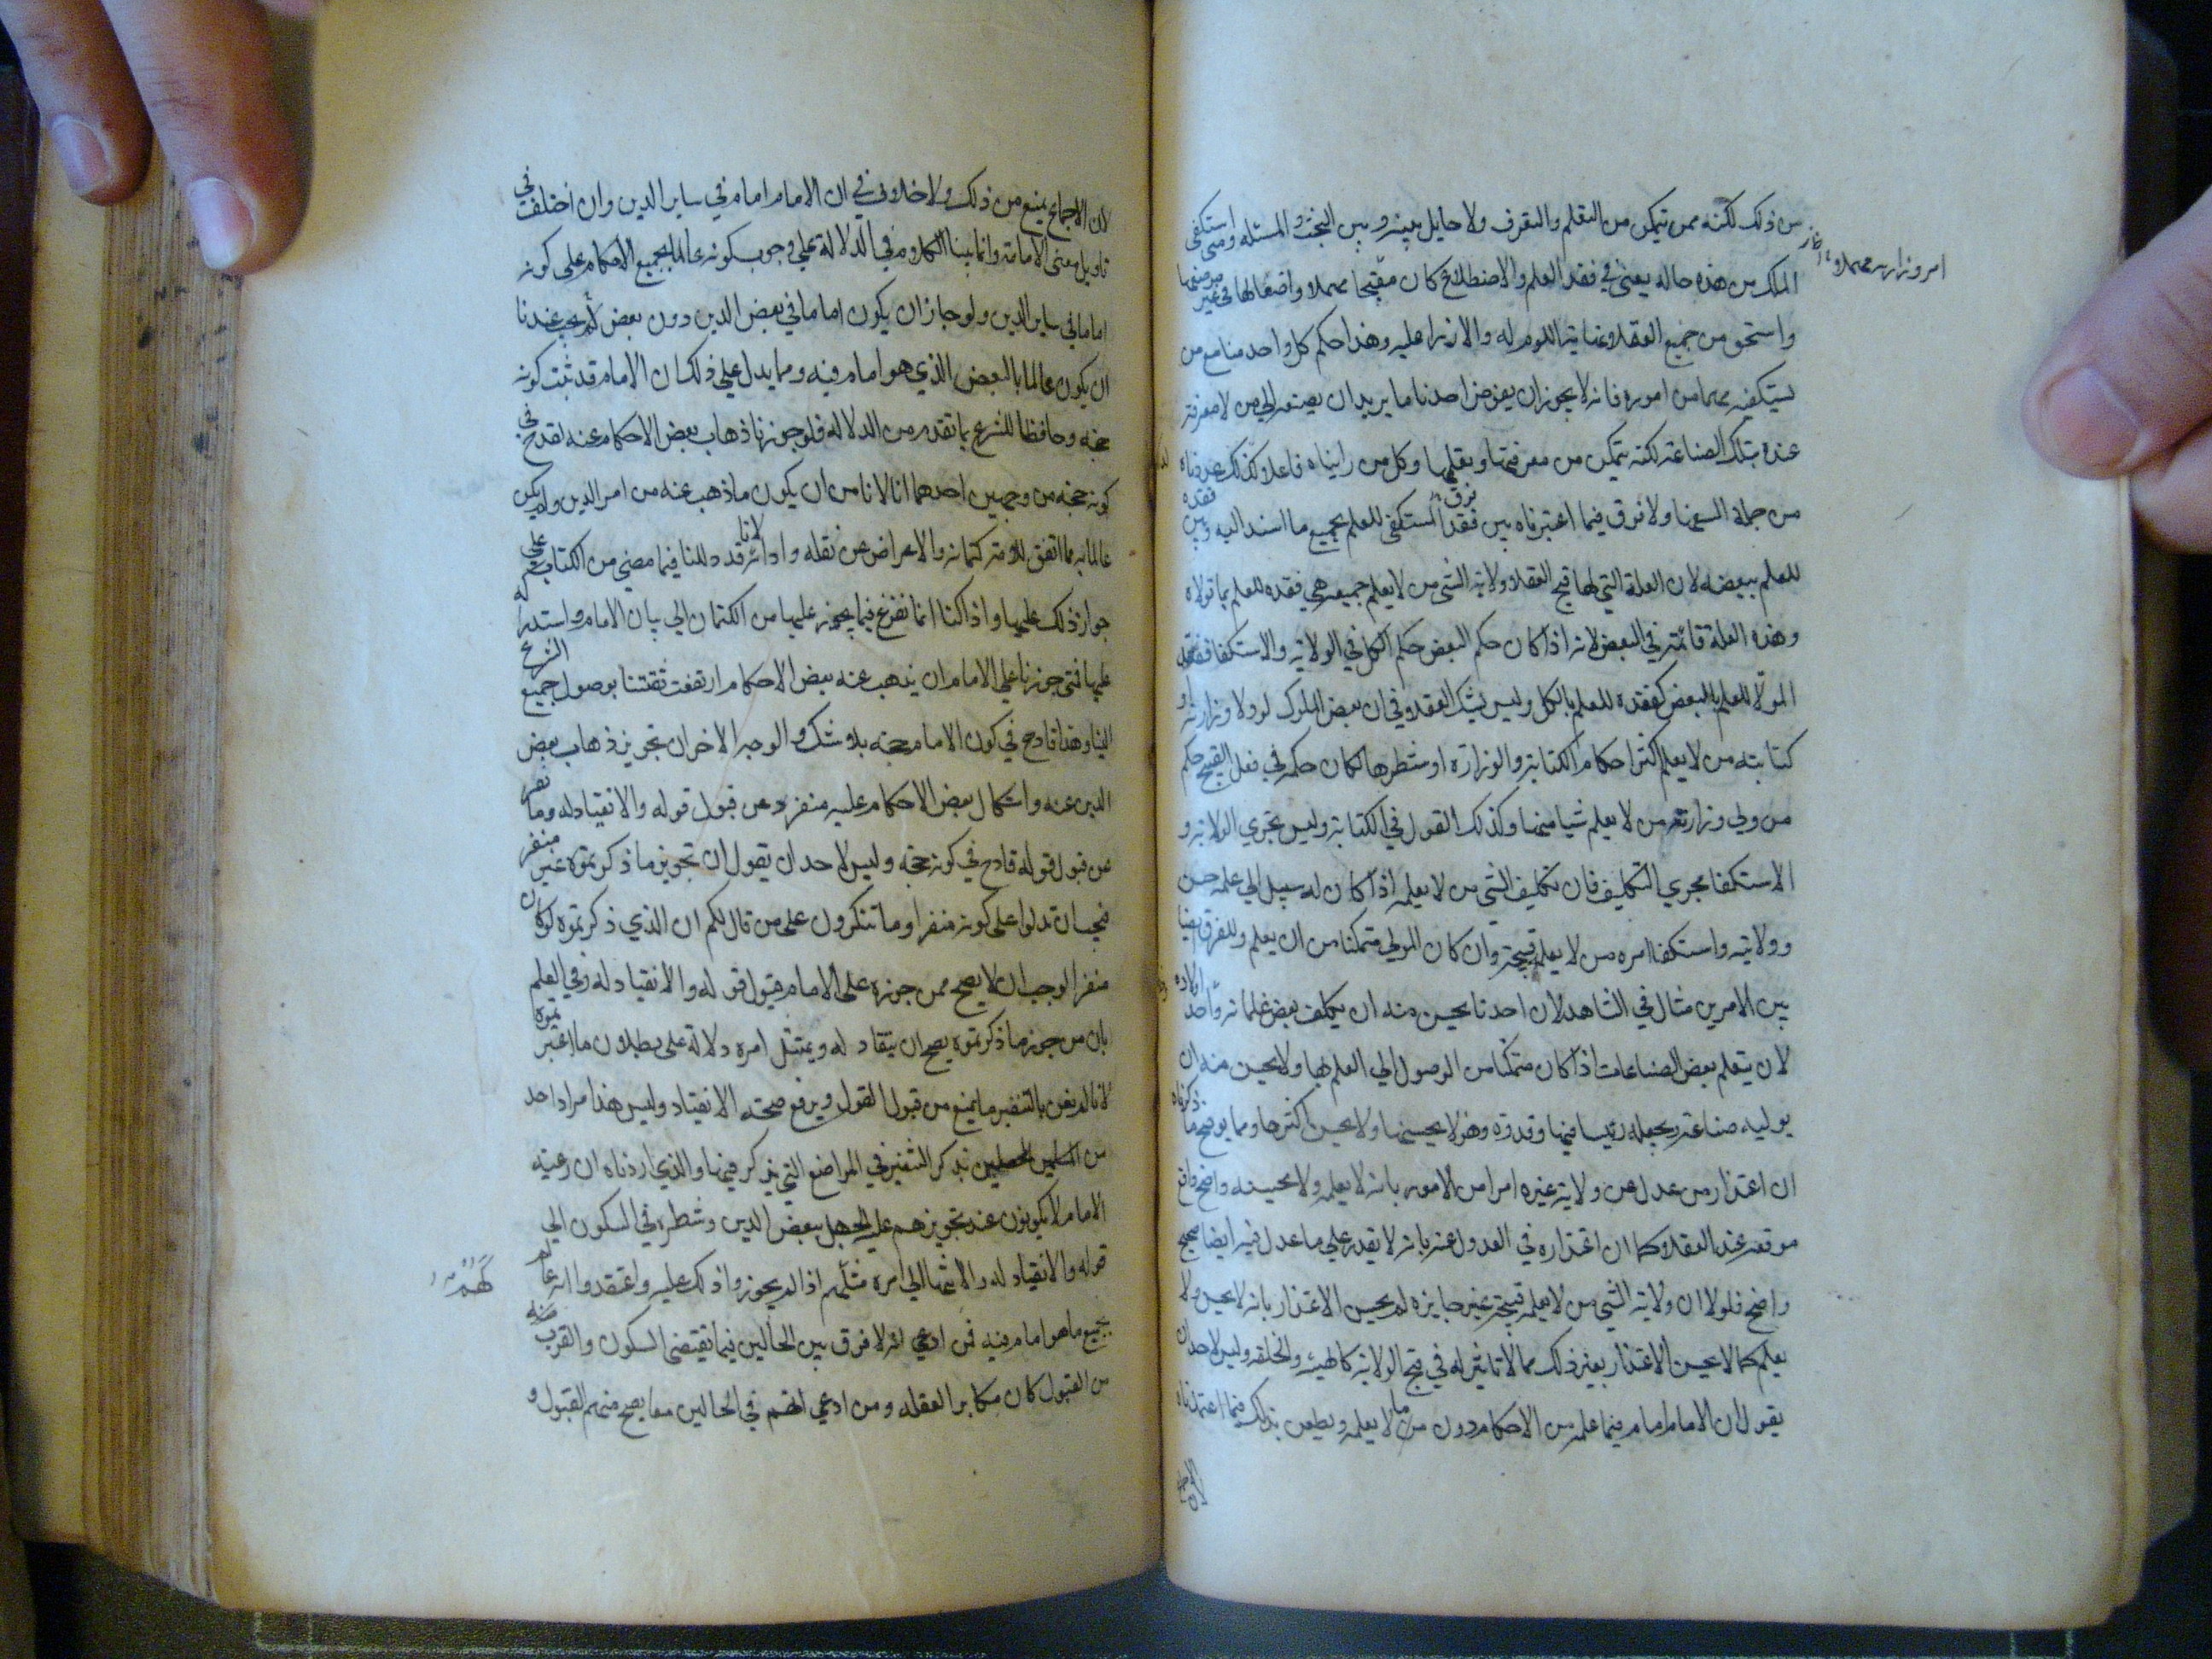 من ذلك لكنه ممن يتمكن من التعلم والتعرف ولا حايل بينه وبين البحث والمسئله ومتى استكفى
امر وزارته مهملا
الملك من هذه حاله يعنى في فقد العلم والاضطلاع كان مقبحا مهملا واضعا لها في غير موضعها
واستحق من جميع العقلا وغاية اللوم له والازرا عليه وهذا حكم كل واحد منا مع من
يستكفيه مهما من اموره فانه لا يجوز ان يفوض احدنا ما يريد ان يصنعه الي من لا معرفة
عنده بتلك الصناعة لكنه يتمكن من معرفتها وتعلمها وكل من رايناه فاعلا كذلك عددناه
من جملة السفها ولا فرق فيما اعتبرناه بين فقد المستكفى للعلم بجميع ما اسند اليه وبين فقده
للعلم ببعضه لان العلة التي لها قبح العقلا ولاية الشي من لا يعلم جميعه هي فقده للعلم بما تولاه
وهذه العلة قائمة في البعض لانه اذا كان حكم البعض حكم الكل في الولاية والاستكفا ففقد
المولا للعلم بالبعض كفقده للعلم بالكل وليس يشك العقلا في ان بعض الملوك لو ولا وزارته او
كتابته من لا يعلم اكثر احكام الكتابة والوزارة او شطرها لكان حكمه في فعل القبيح حكم
من ولي وزارته من لا يعلم شيا منها وكذلك القول في الكتابة وليس تجري الولاية و
الاستكفا مجري التكليف فان تكليف الشي من لا يعلمه اذا كان له سبيل الي علمه حسن
وولايته واستكفا امره من لا يعلمه قبيحة وان كان المولي متمكنا من ان يعلم وللفرق ايضا
بين الامرين مثال في الشاهد لان احدنا يحسن منه ان يكلف بعض غلمانه واحد اولاده
لان يتعلم بعض الصناعات اذا كان متمكنا من الوصول الي العلم بها ولا يحسن منه ان
يوليه صناعة ويجعله رئيسا فيها وقدوة وهو لا يحسنها ولا يحسن اكثرها ومما يوضح ما ذكرناه
ان اعتذار من عدل عن ولاية غيره امرا من الامور بانه لا يعلمه ولا يحسنه واضح واقع
موقعه عند العقلا كما ان اعتذاره في العدول عنه بانه لا يقدر علي ما عدل فيه ايضا صحيح
واضح فلولا ان ولاية الشي من لا يعلمه قبيحة غير جايزه لم يحسن الاعتذار بانه لا يحسن ولا
يعلم كما لا يحسن الاعتذار بغير ذلك مما لا تاثير له في قبح الولاية كالهيئه والخلقه وليس لاحد ان
يقول ان الامام امام فيما علمه من الاحكام دون من ما لا يعلمه ويطعن بذلك فيما اعتمدناه
لان الاجماع يمنع من ذلك ولا خلاف في ان الامام امام في ساير الدين وان اختلف في
تاويل معنى الامامة وانما بنينا الكلام في الدلالة علي وجوب كونه عالما بجميع الاحكام علي كونه
اماما في ساير الدين ولو جاز ان يكون اماما في بعض الدين دون بعض لم يجب عندنا
ان يكون عالما بالبعض الذي هو امام فيه ومما يدل علي ذلك ان الامام قد ثبت كونه
حجه وحافظا للشرع بما تقدم من الدلاله فلو جوزنا ذهاب بعض الاحكام عنه لقدح في
كونه حجه من وجهين احدهما انا لا نامن ان يكون ما ذهب عنه من امر الدين ولم يكن
عالما به مما اتفق للامة كتمانه والاعراض عن نقله وادائه لانا قد دللنا فيما مضي من الكتاب على
جواز ذلك عليها واذا كنا انما نفزع فيما يجوز عليها من الكتمان الي بيان الامام واستدراكه
عليها فمتى جوزنا علي الامام ان يذهب عنه بعض الاحكام ارتفعت ثقتنا بوصول جميع الشرع
الينا وهذا قادح في كون الامام حجه بلا شك والوجه الاخر ان تجويز ذهاب بعض
الدين عنه واشكال بعض الاحكام عليه منفر عن قبول قوله والانقياد له وما نفر
عن قبول قوله قادح في كونه حجة وليس لاحد ان يقول ان تجويز ما ذكرتموه غير منفر
فيجب ان تدلوا علي كونه منفرا وما تنكرون على من قال لكم ان الذي ذكرتموه لو كان
منفرا لوجب ان لا يصح ممن جوزه علي الامام قبول قوله والانقياد له وفي العلم
بان من جوز ما ذكرتموه يصح ان ينقاد له ويمتثل امره دلالة على بطلان ما اعتبرتموه
لانا لم نعن بالتنفير ما يمنع من قبول القول ويرفع صحته الانقياد وليس هذا مراد احد
من المسلمين المحصلين بذكر التنفير في المواضع التي يذكر فيها والذي اردناه ان رعية
الامام لا يكونون عند تجويزهم عليه الجهل ببعض الدين وشطره في السكون الي
قوله والانقياد له والانتهاء الي امره مثلهم اذا لم يجوزوا ذلك عليه واعتقدوا انه عالم
كهم
بجميع ما هو امام فيه فمن ادعي انه لا فرق بين الحالين فيما يقتضي السكون والقرب منه
من القبول كان مكابرا لعقله ومن ادعي انهم في الحالين معا يصح منهم القبول و